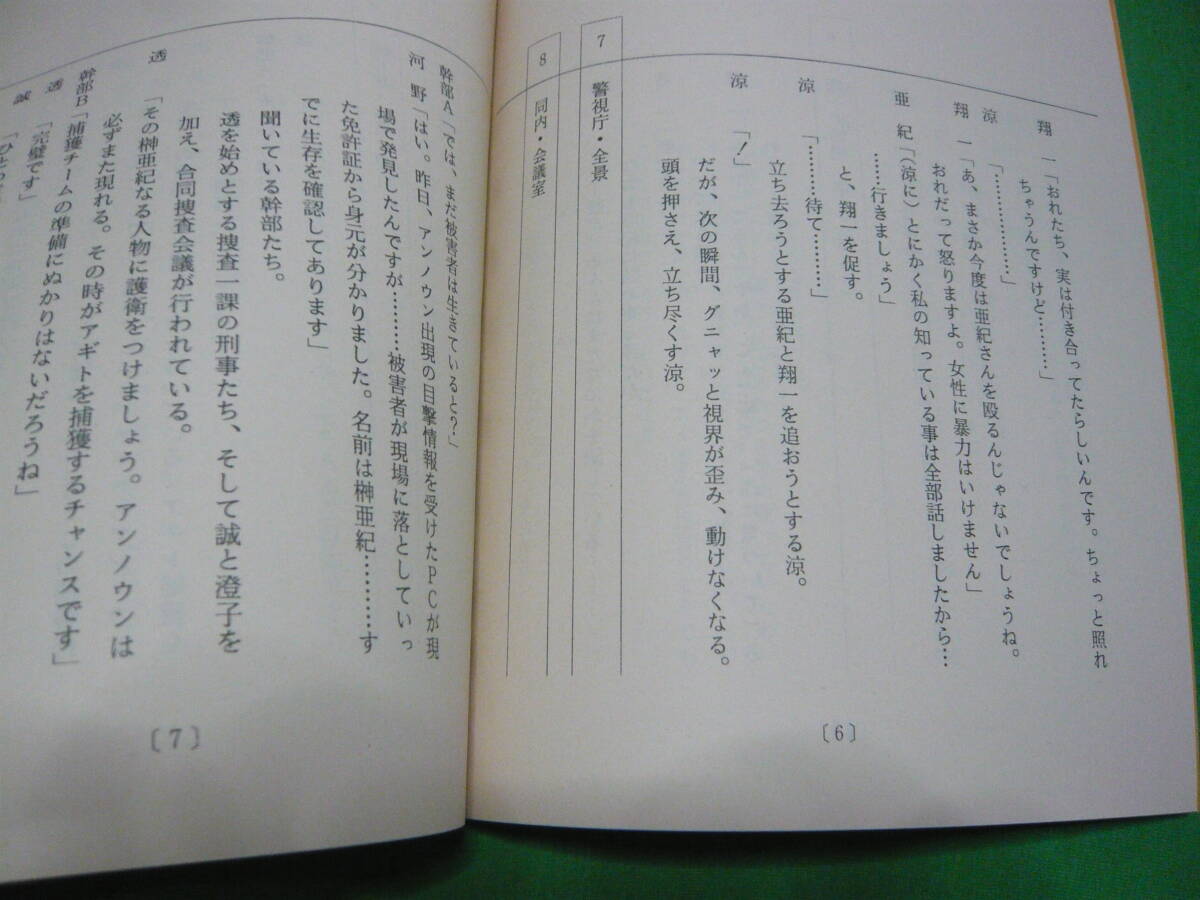 翔　一「おれたち、実は付き合ってたらしいんです。ちょっと照れ
ちゃうんですけど…………」
涼　「………………」
翔　一「あ、まさか今度は亜紀さんを殴るんじゃないでしょうね。
おれだって怒りますよ。女性に暴力はいけません」
亜　紀「（涼に）とにかく私の知っている事は全部話しましたから…
……行きましょう」
と、翔一を促す。
涼　「…………待て…………」
立ち去ろうとする亜紀と翔一を追おうとする涼。
涼　「！」
だが、次の瞬間、グニャッと視界が歪み、動けなくなる。
頭を押さえ、立ち尽くす涼。
7　警視庁・全景
8　同内・会議室
〔6〕
幹部A「では、まだ被害者は生きていると？」
河　野「はい。昨日、アンノウン出現の目撃情報を受けたPCが現
場で発見したんですが………被害者が現場に落としていっ
た免許証から身元が分かりました。名前は榊亜紀…………す
でに生存を確認してあります」
聞いている幹部たち。
透を始めとする捜査一課の刑事たち、そして誠と澄子を
加え、合同捜査会議が行われている。
透　「その榊亜紀なる人物に護衛をつけましょう。アンノウンは
必ずまた現れる。その時がアギトを捕獲するチャンスです」
幹部B「捕獲チームの準備にぬかりはないだろうね」
透　「完璧です」
誠
〔7〕